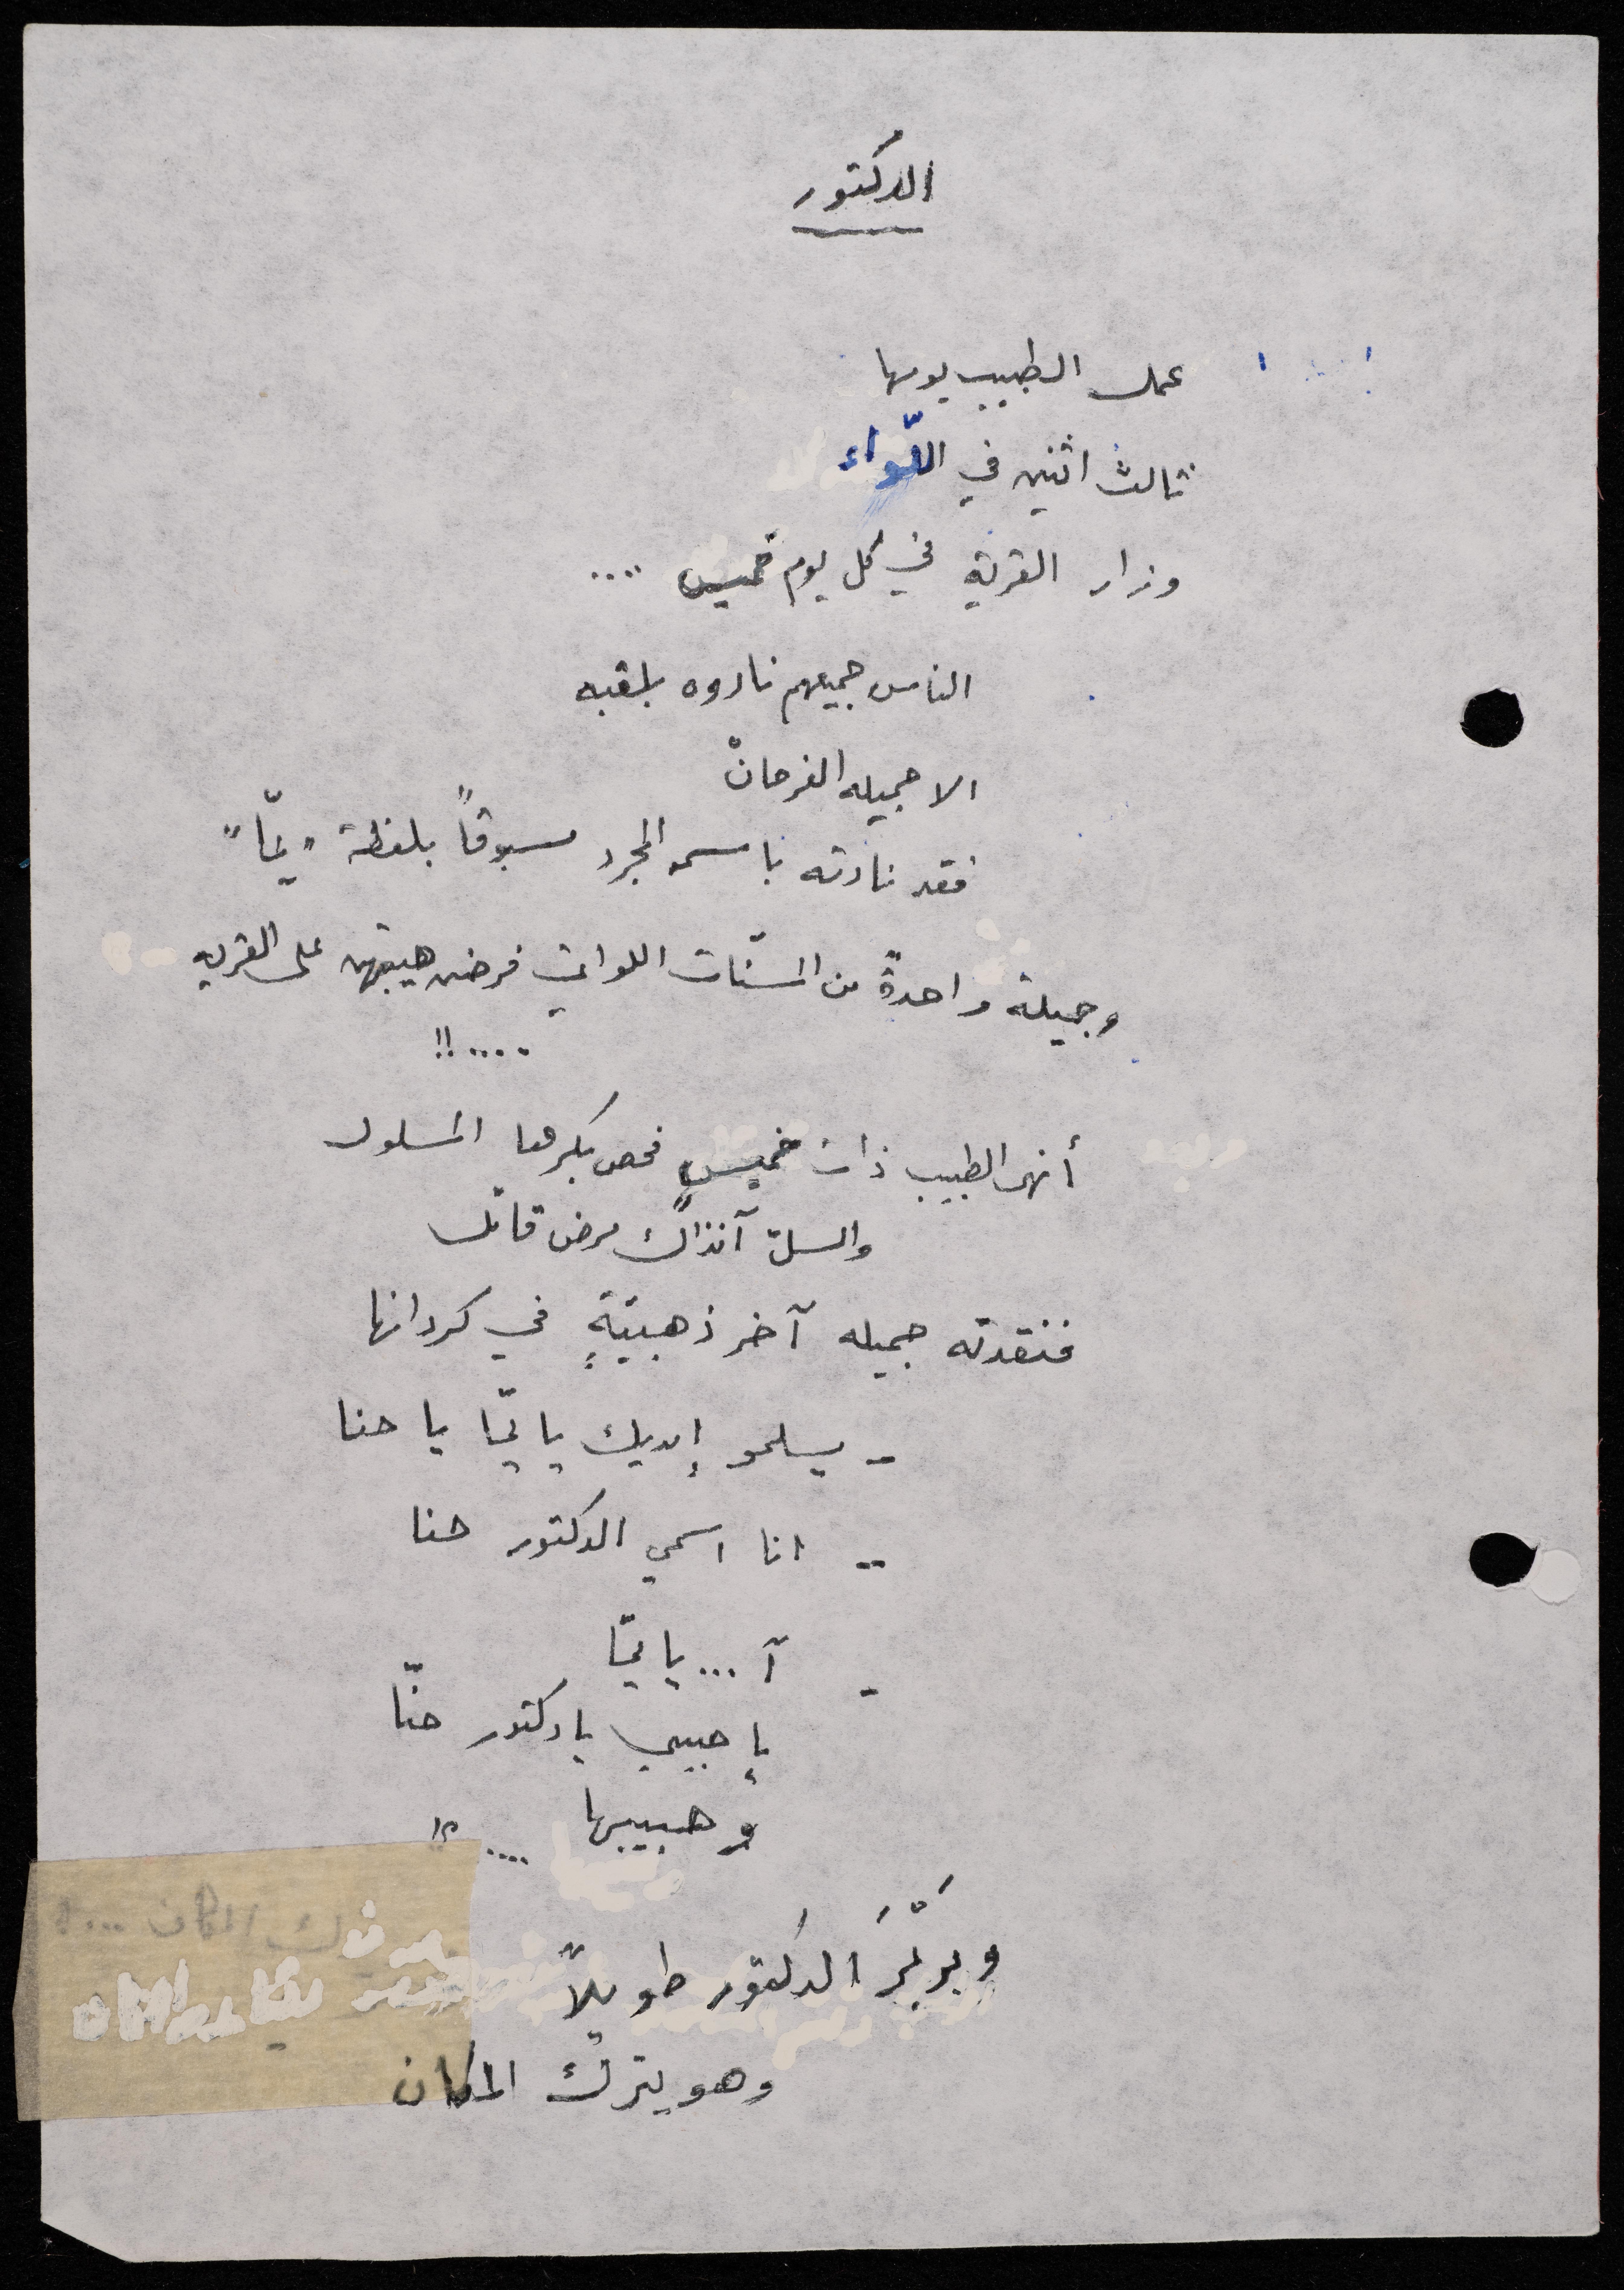 الدكتور
عمل الطبيب يومها
ثالث اثنين في اللّواء
وزار القرية في كل يوم خميس ....
الناس جميعهم نادوه بلقبه
الا جميله الفرحانْ
فقد نادته باسمه المجرد مسبوقاً بلفظة "يمّا"
وجميلة واحدةً من المسنّات اللواتي فرضن هيبتهن على القريه
....!!
أنهى الطبيب ذات خميسٍ فحص بكرها المسلول
والسلّ آنذاك مرض قاتل
فنقدته جميله آخر ذهبيّةٍ في كردانها
- يسلمو إيديك يا يمّا يا حنا
- انا اسمي الدكتور حنا
- آ ... يا يمّا
يا حبيبي يا دكتور حنّا
وحبيبها ....؟!
وبَرْبَرَ الدكتور طويلاً
وهو يترك المكان